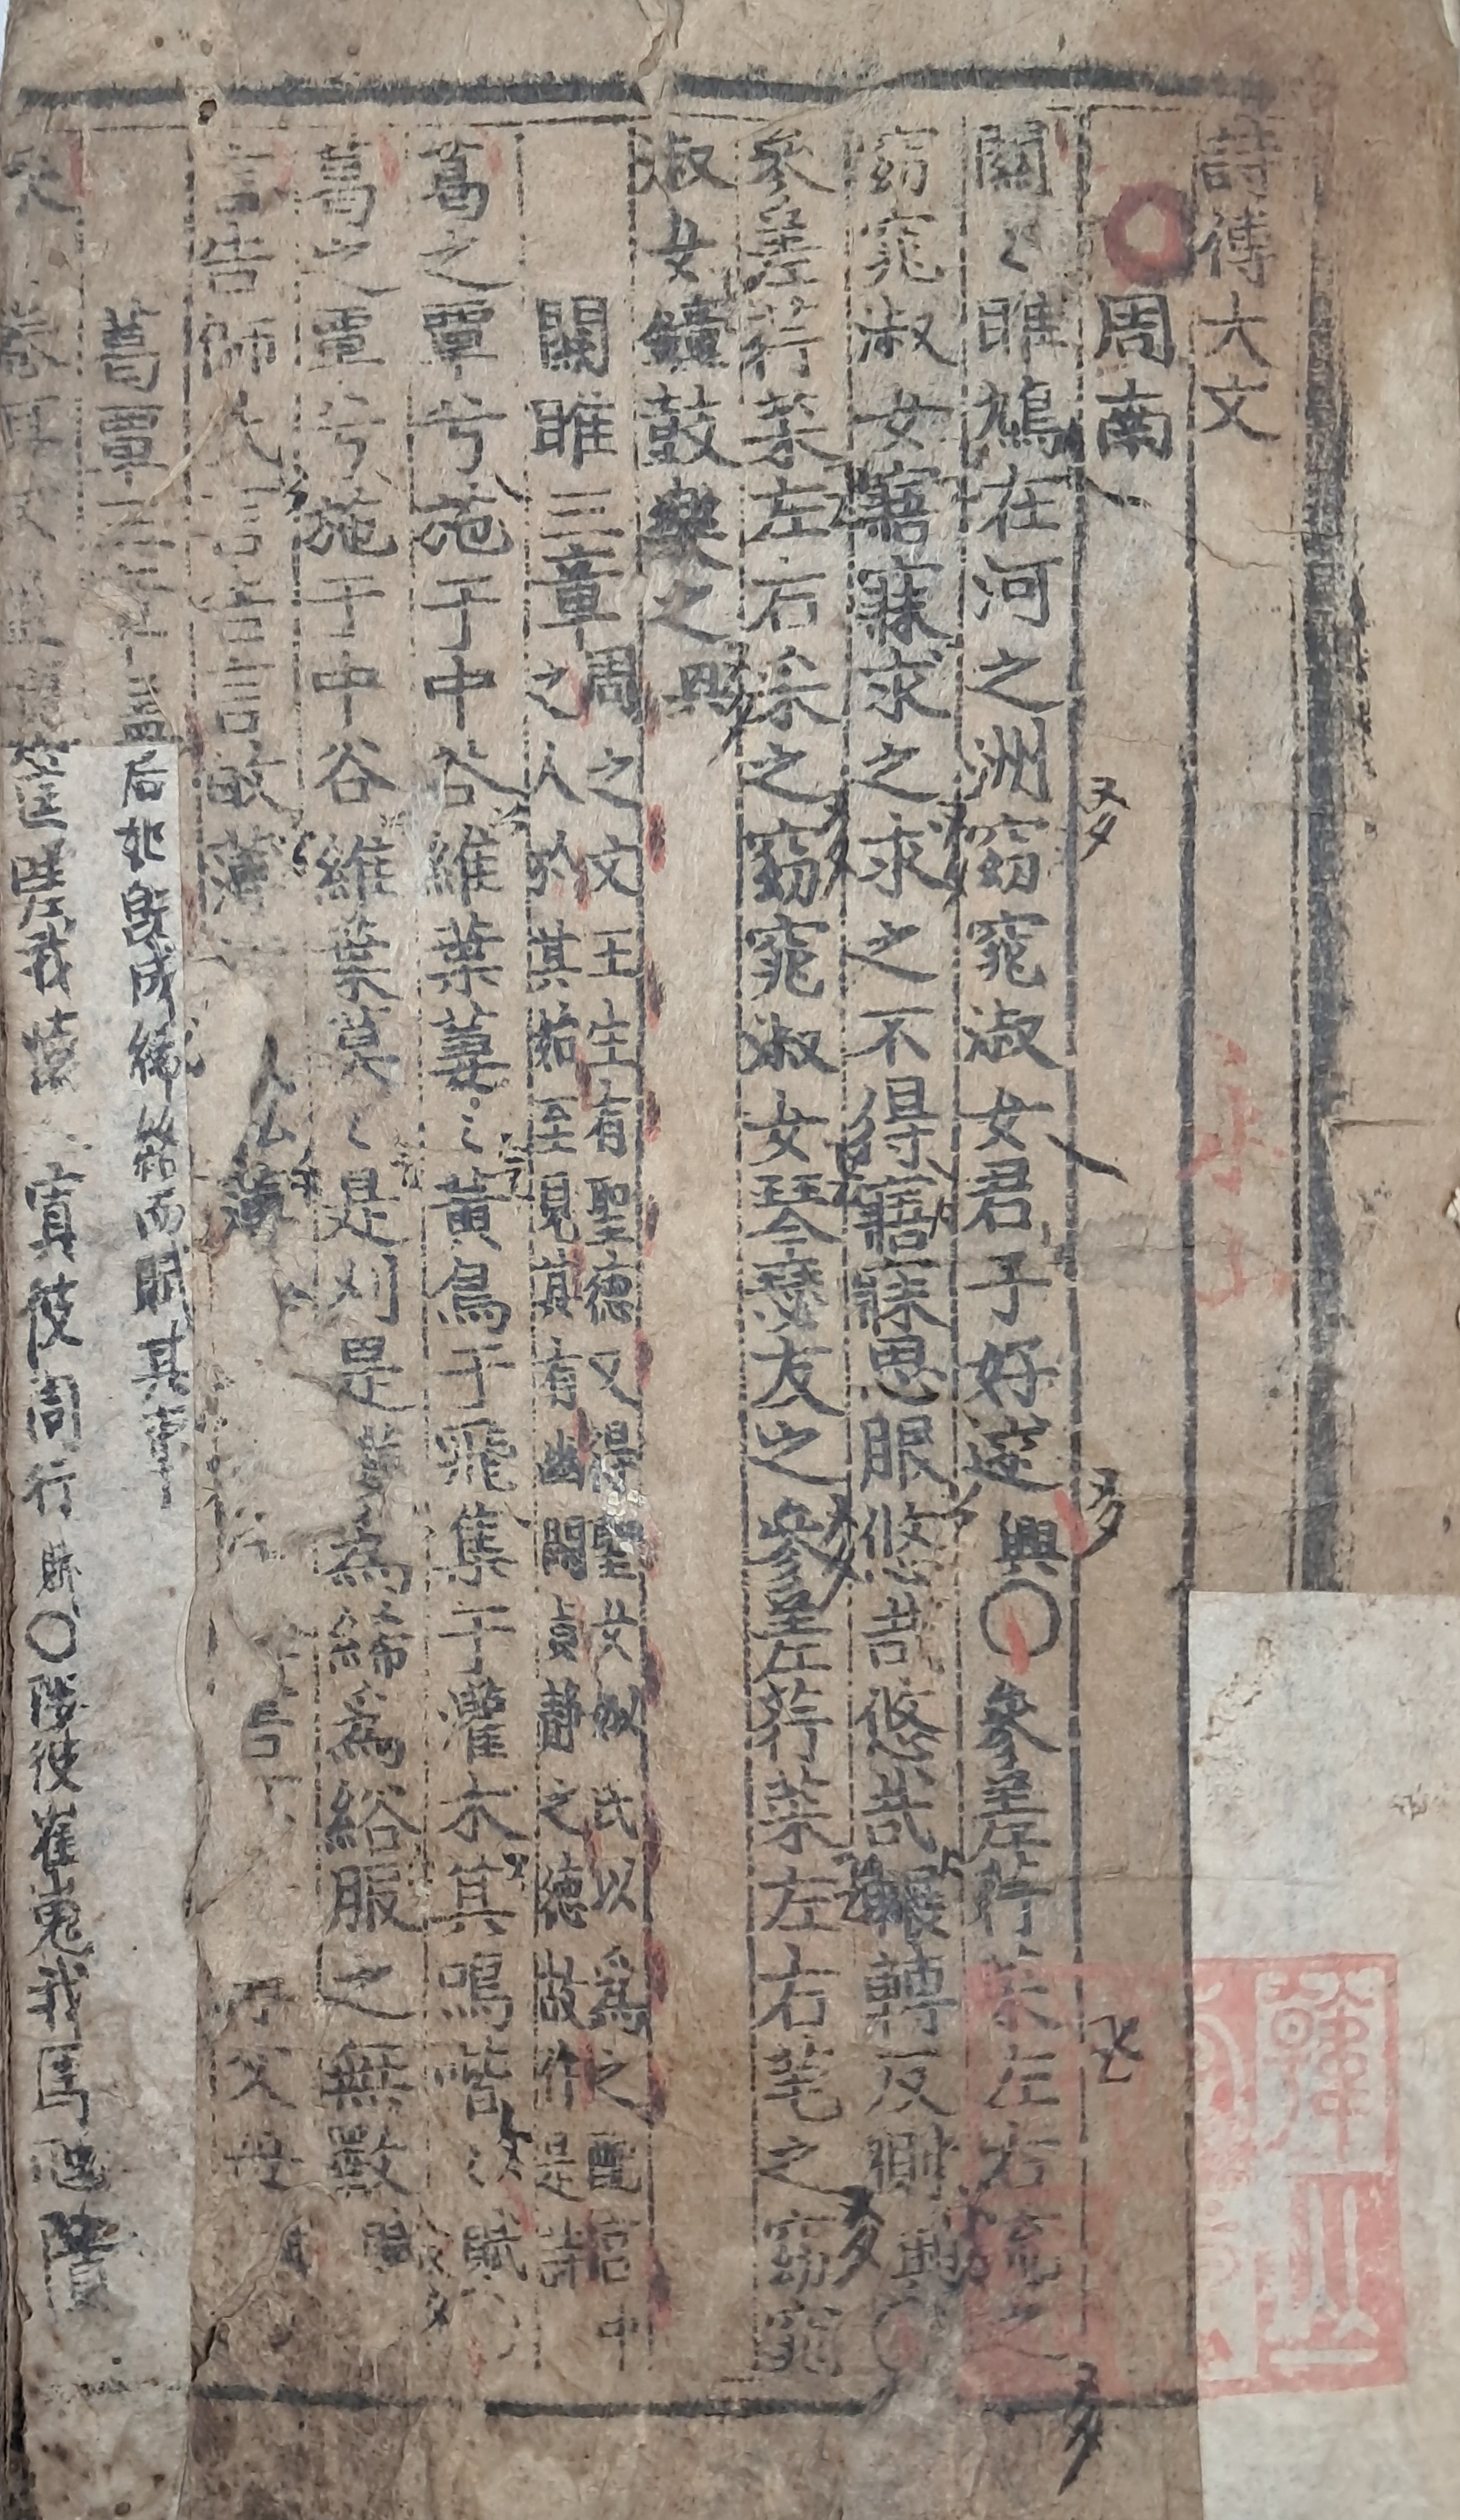 詩傳大文
周南
關〻雎鳩在河之洲窈窕淑女君子好逑興○參差荇菜左右流之
窈窕淑女寤寐求之求之不得寤寐思服悠哉悠哉輾轉反側興○
參差荇菜左右采之窈窕淑女琴瑟友之參差荇菜左右芼之窈窕
淑女鐘鼓樂之興
關雎三章周之文王生有聖德又得聖女姒氏以爲之配宮中
之人於其始至見其有幽閒貞靜之德故作是詩
葛之覃兮施于中谷維葉萋〻黃鳥于飛集于灌木其鳴喈〻賦
葛之覃兮施于中谷維葉莫〻是刈是濩爲絺爲綌服之無斁賦
言告師氏言告言歸薄 薄 父母
葛覃三章盖后妃旣成絺綌而賦其事
采 卷耳 筐嗟我懷 寘彼周行賦○陟彼崔嵬我馬虺隤
韓山